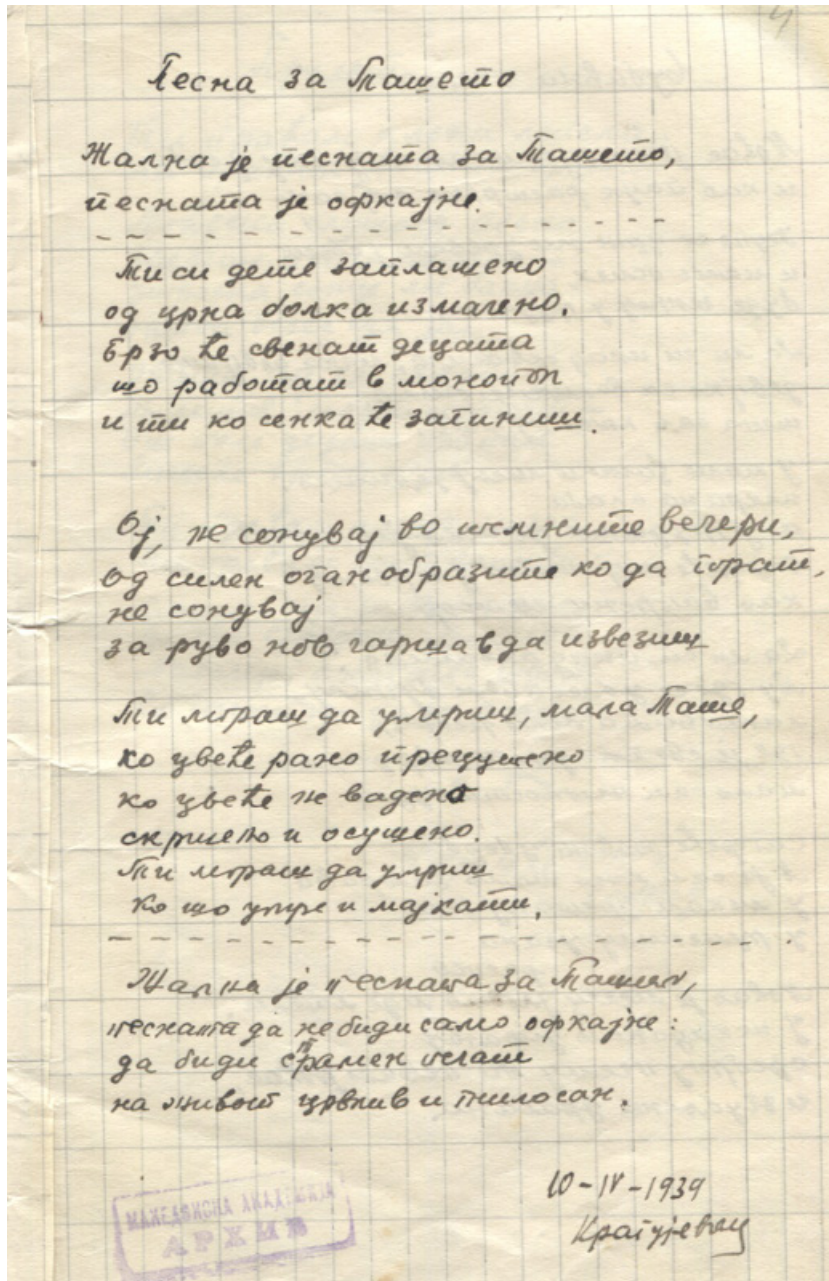 4
Песна за Ташето
Жална је песната за Ташето,
песната је офкајне.
Ти си дете заплашено
од црна болка измачено.
Брзо ќе свенат децата
шо работат в монопол
и ти ко сенка ќе загиниш.
Ој, не сонувај во темните вечери,
од силен оган образите ко да горат,
не сонувај
за руво нов гаршав да извезиш
Ти мораш да умриш, мала Таше,
ко цвеќе рано прецутено
ко цвеќе не вадено
скршено и осушено.
Ти мораш да умриш
ко шо умре и мајкати.
Жална је песната за Ташето,
песната да не биди само офкајне:
да биди страмен печат
на живот црвлив и гнилосан.
10-IV-1939
Крагујевац
МАКЕДОНСКА АКАДЕМИЈА
АРХИВ